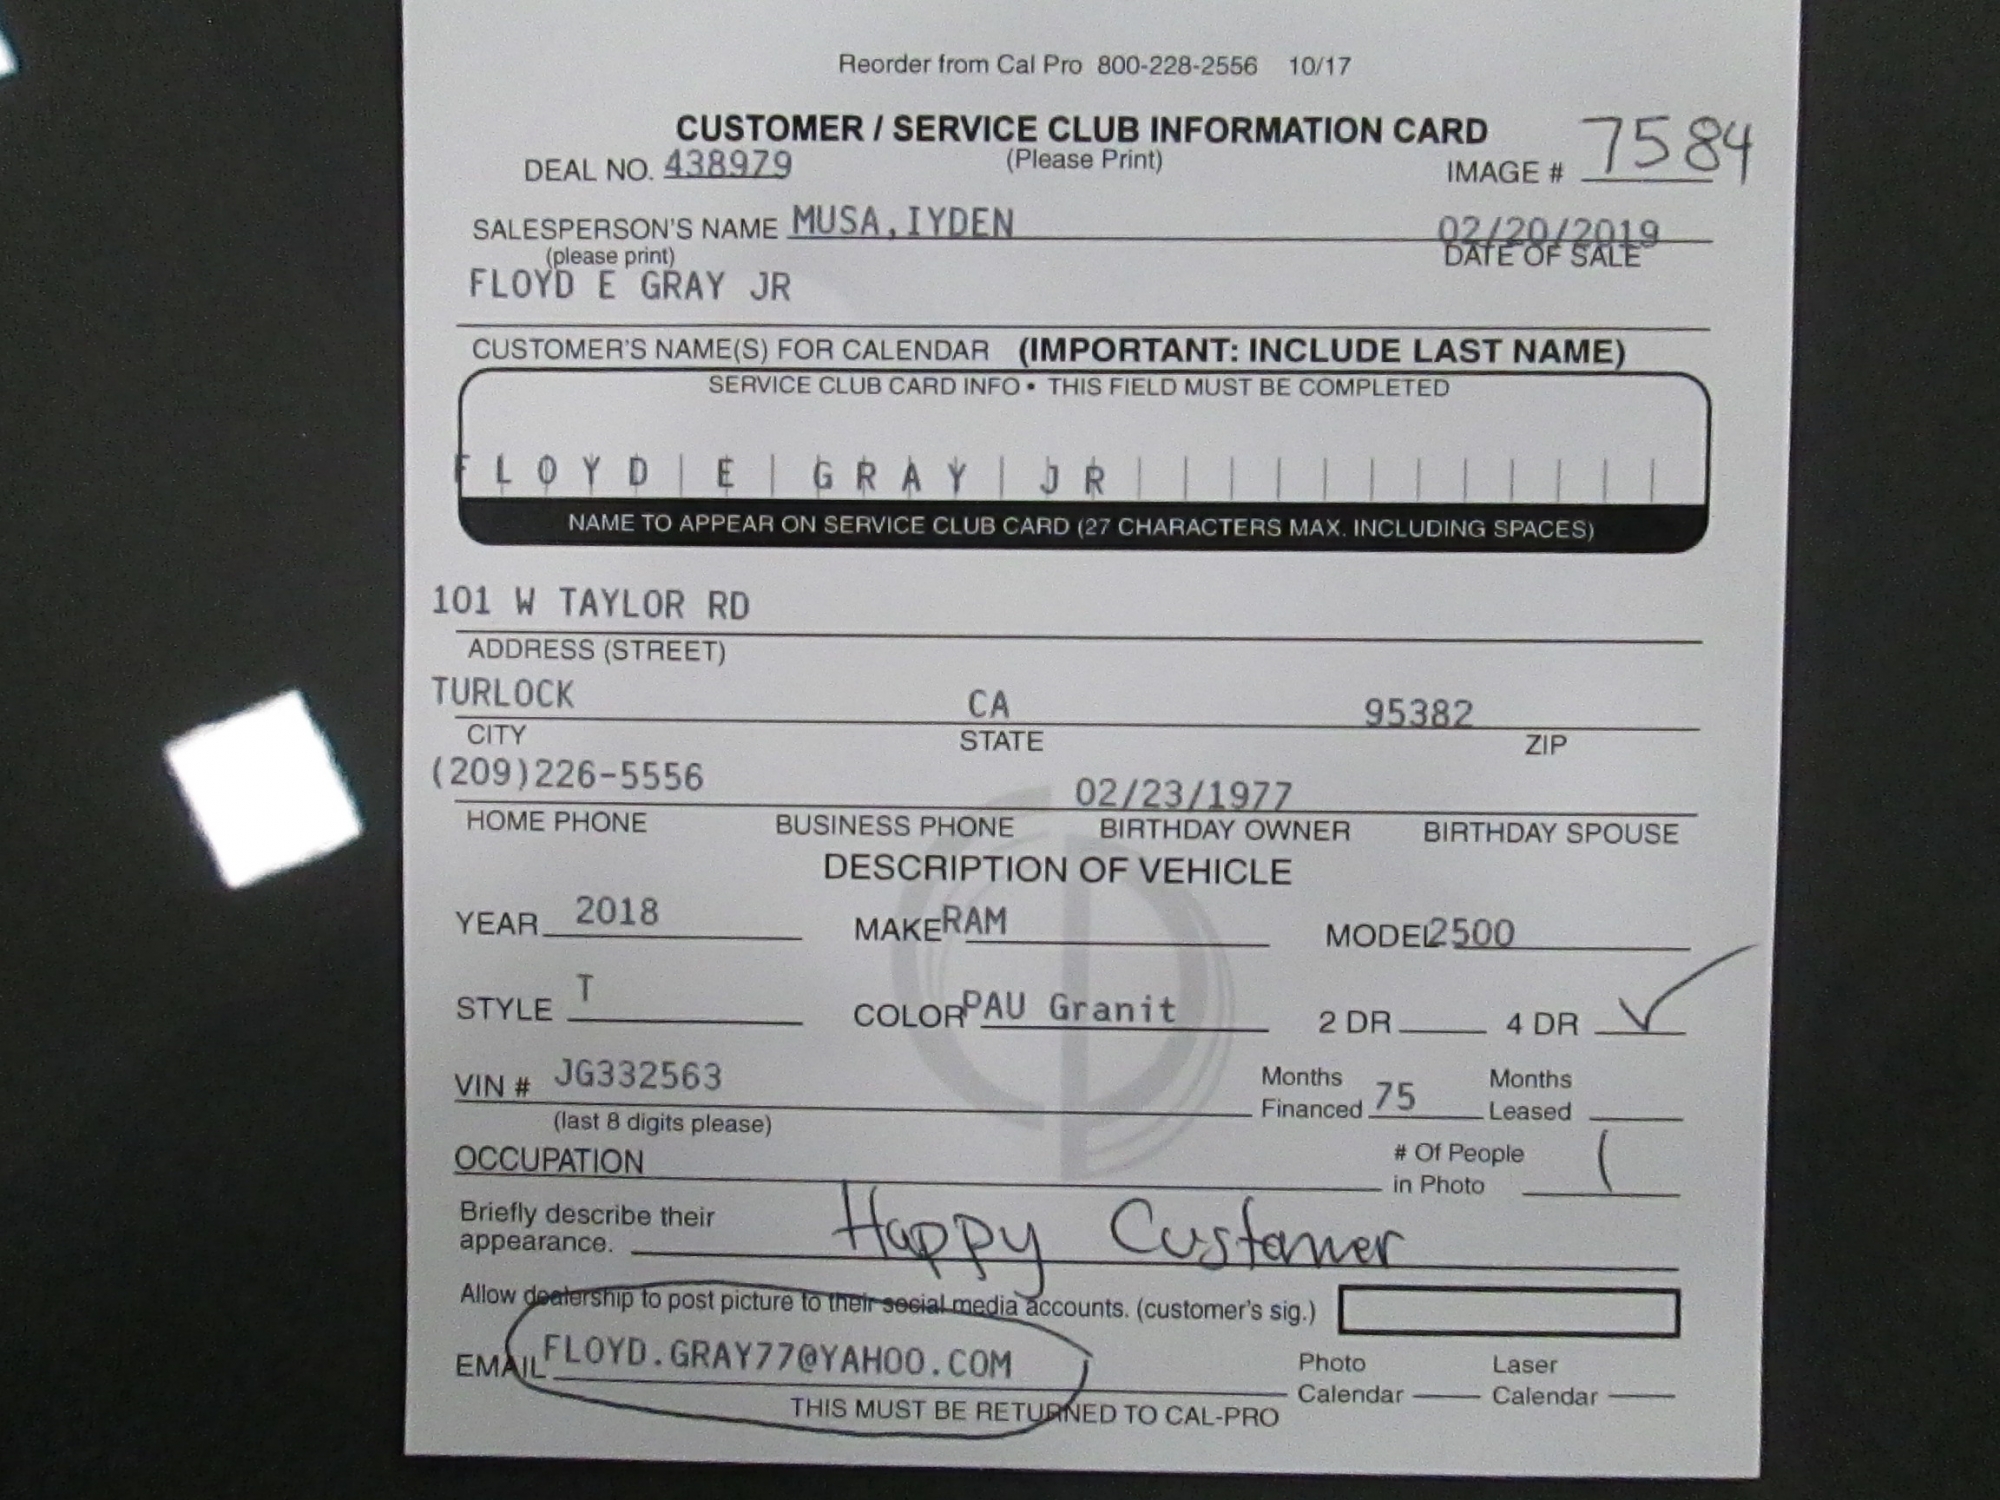 Reorder from Cal Pro 800-228-2556 10/17
CUSTOMER / SERVICE CLUB INFORMATION CARD
DEAL NO. 438979 (Please Print) IMAGE # 7584
SALESPERSON'S NAME MUSA, IYDEN 02/20/2019
(please print) DATE OF SALE
FLOYD E GRAY JR
CUSTOMER'S NAME(S) FOR CALENDAR (IMPORTANT: INCLUDE LAST NAME)
SERVICE CLUB CARD INFO • THIS FIELD MUST BE COMPLETED
FLOYD E GRAY JR
NAME TO APPEAR ON SERVICE CLUB CARD (27 CHARACTERS MAX. INCLUDING SPACES)
101 W TAYLOR RD
ADDRESS (STREET)
TURLOCK CA 95382
CITY STATE ZIP
(209)226-5556 02/23/1977
HOME PHONE BUSINESS PHONE BIRTHDAY OWNER BIRTHDAY SPOUSE
DESCRIPTION OF VEHICLE
YEAR 2018 MAKE RAM MODEL 2500
STYLE T COLOR PAU Granit 2 DR 4 DR ✓
VIN # JG332563 Months Financed 75 Months Leased
(last 8 digits please)
OCCUPATION # Of People in Photo 1
Briefly describe their appearance. Happy Customer
Allow dealership to post picture to their social media accounts. (customer's sig.)
EMAIL FLOYD.GRAY77@YAHOO.COM Photo Calendar Laser Calendar
THIS MUST BE RETURNED TO CAL-PRO